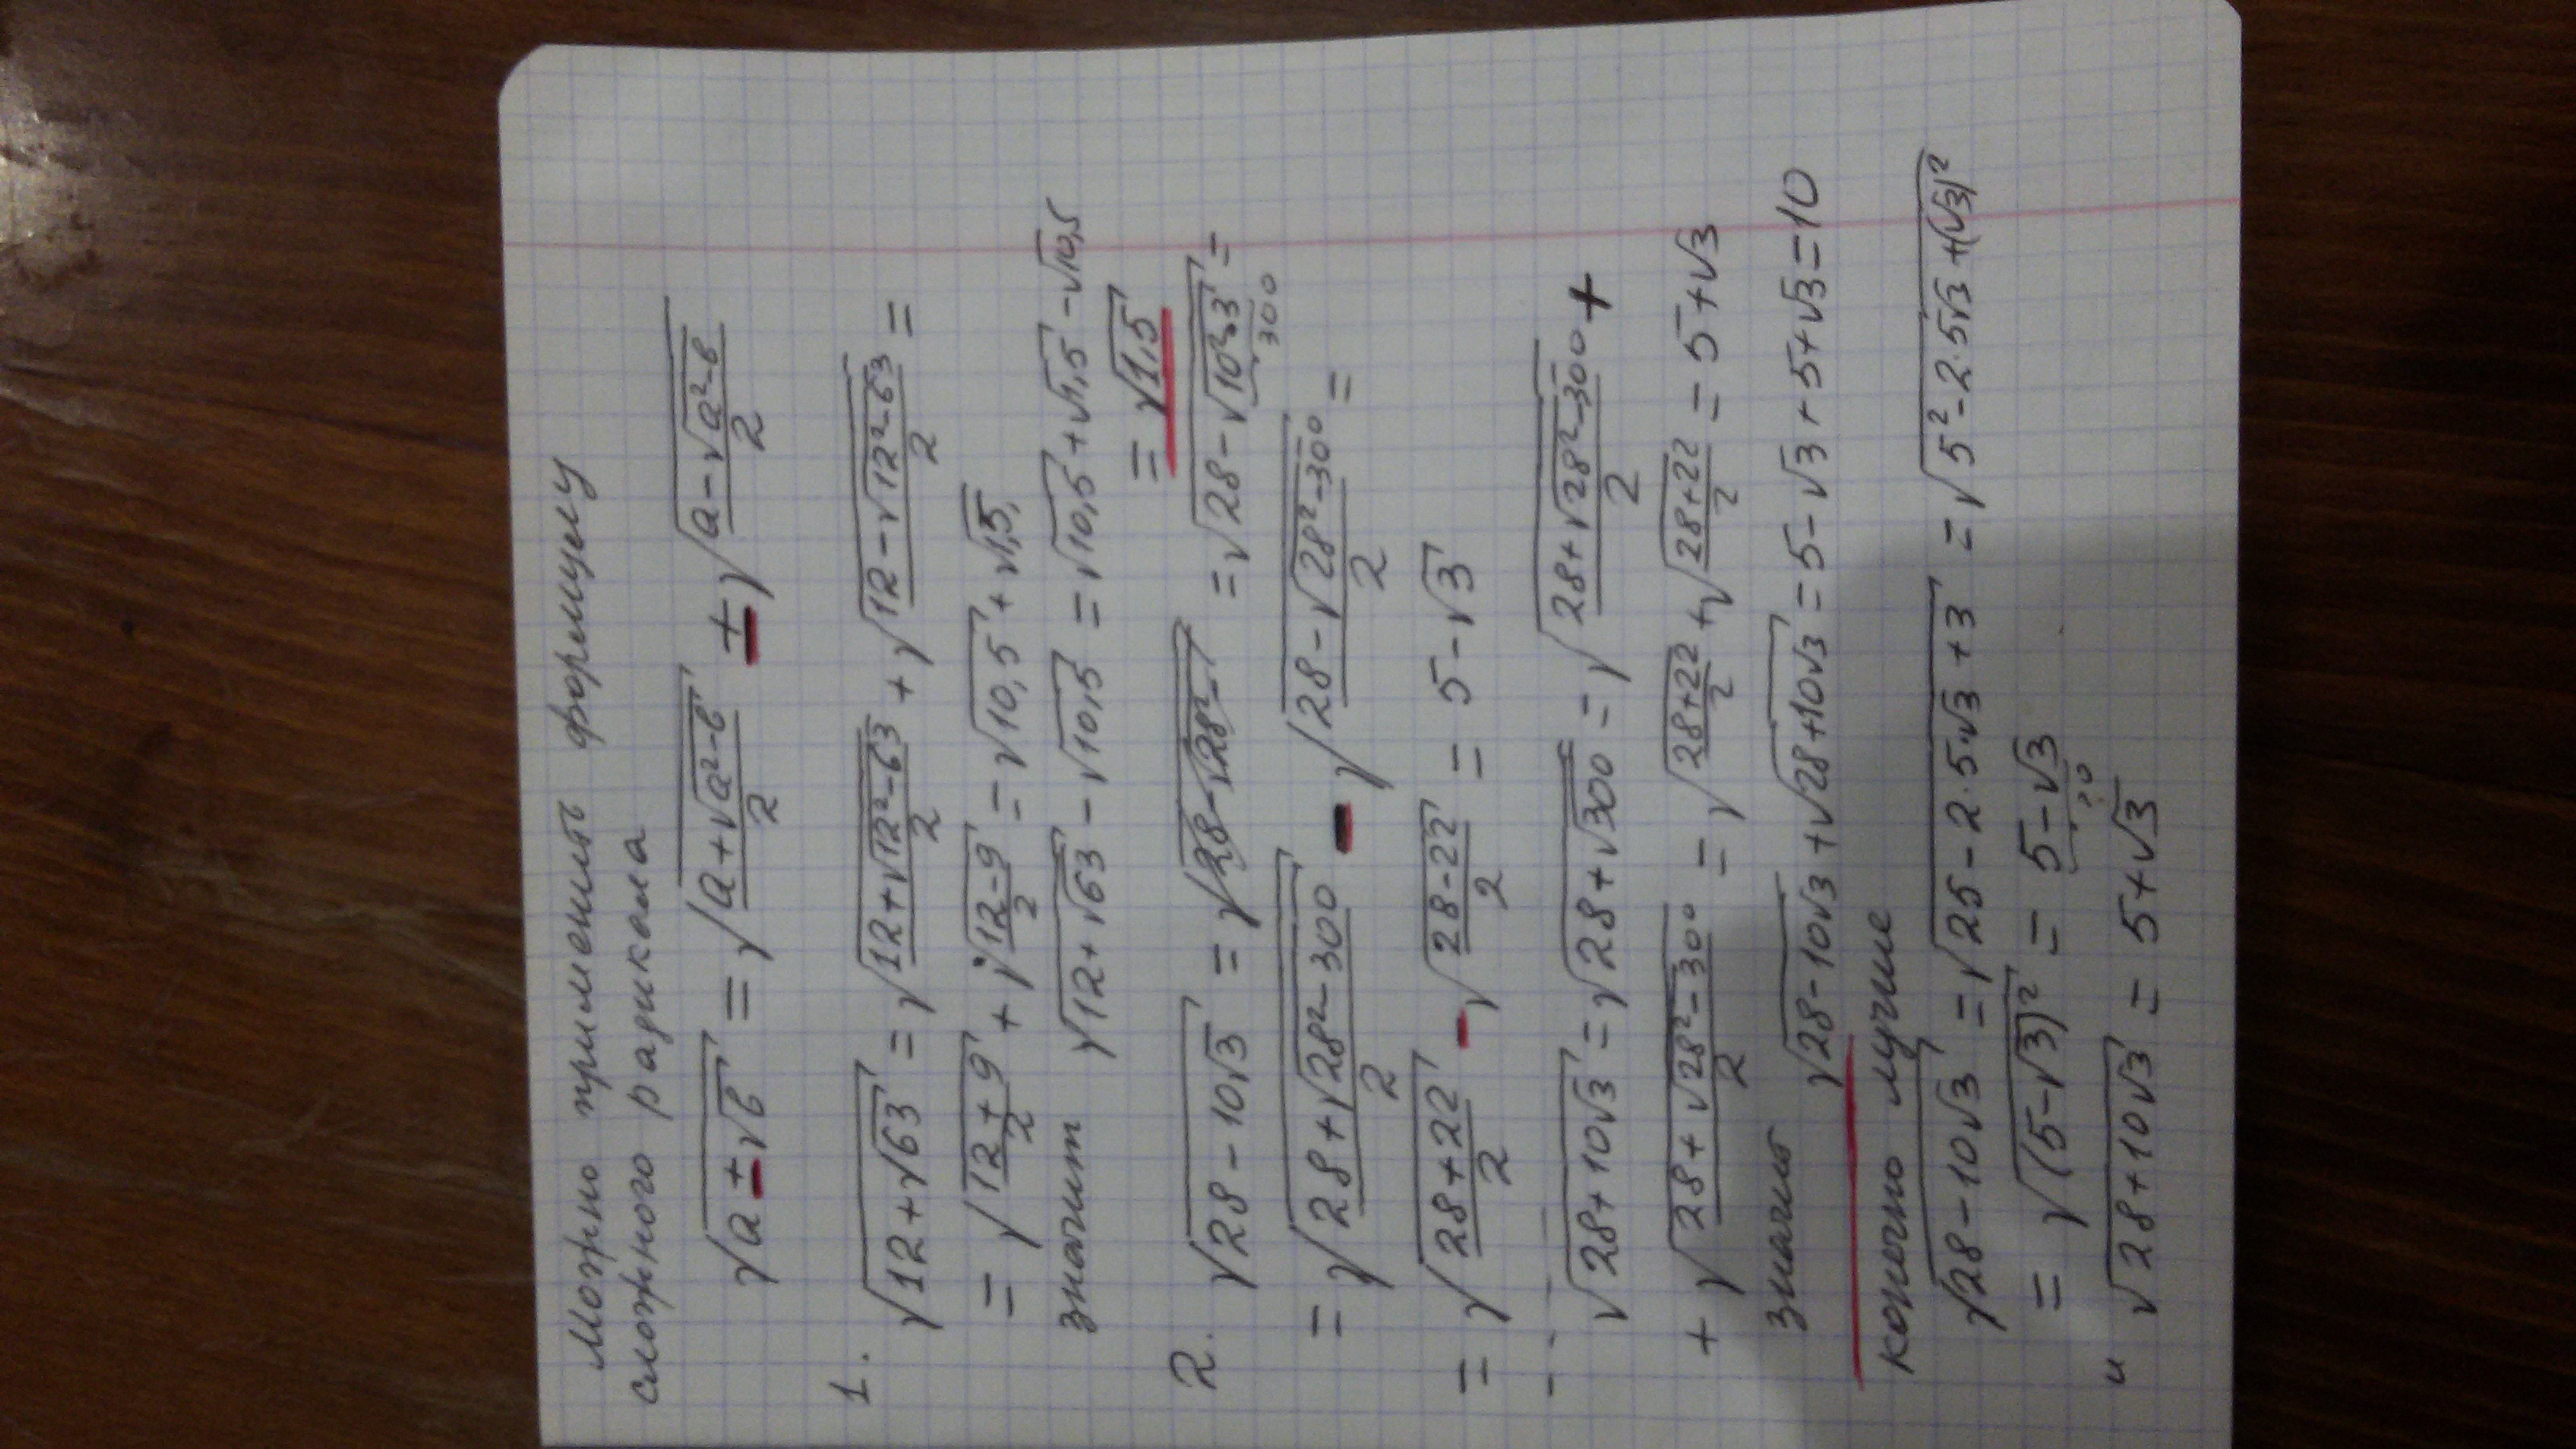 Можно применить формулу
сложного радикала
√(a ± √в) = √((a + √(a² - в))/2) ± √((a - √(a² - в))/2)
1. √(12 + √63) = √((12 + √(12² - 63))/2) + √((12 - √(12² - 63))/2) =
= √((12 + 9)/2) + √((12 - 9)/2) = √10,5 + √1,5,
значит √(12 + √63) - √10,5 = √10,5 + √1,5 - √10,5
= √1,5
2. √(28 - 10√3) = √(28 - √(10²·3)) =
300
= √((28 + √(28² - 300))/2) - √((28 - √(28² - 300))/2) =
= √((28 + 22)/2) - √((28 - 22)/2) = 5 - √3
√(28 + 10√3) = √(28 + √300) = √((28 + √(28² - 300))/2) +
+ √((28 + √(28² - 300))/2) = √((28 + 22)/2) + √((28 + 22)/2) = 5 + √3
значит √(28 - 10√3) + √(28 + 10√3) = 5 - √3 + 5 + √3 = 10
конечно лучше
√(28 - 10√3) = √(25 - 2·5·√3 + 3) = √(5² - 2·5√3 + (√3)²)
= √((5 - √3)²) = 5 - √3
>0
и √(28 + 10√3) = 5 + √3